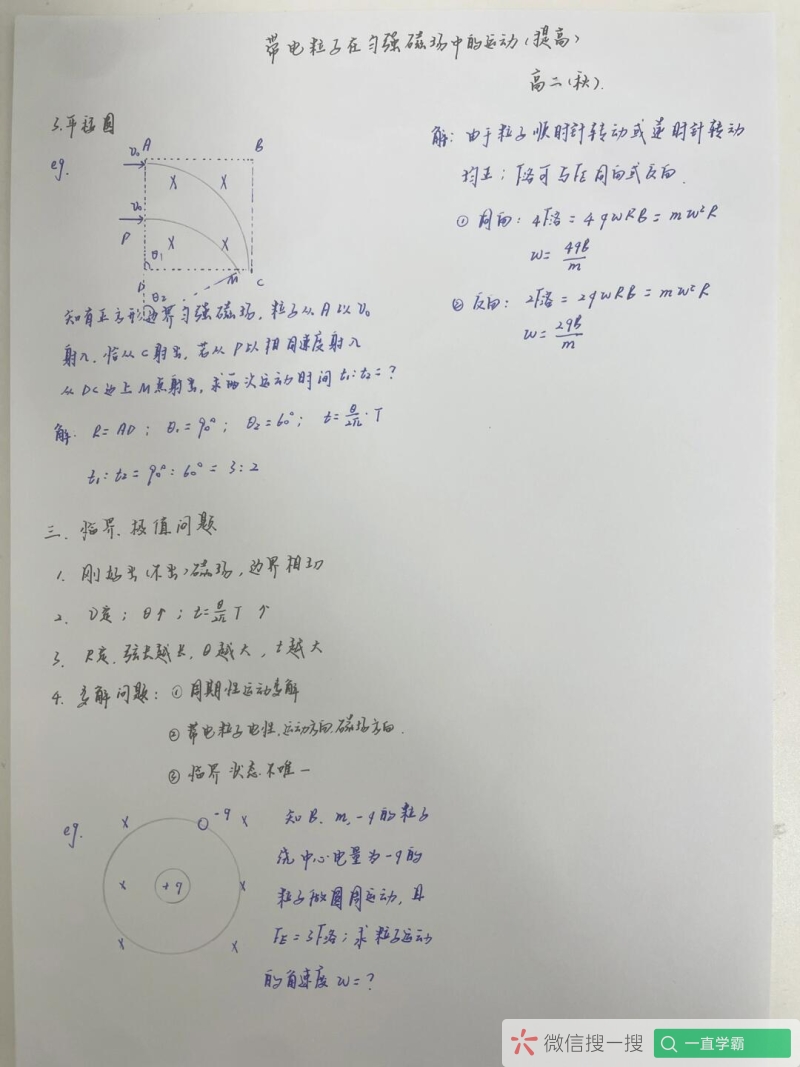 带电粒子在匀强磁场中的运动(提高)
高二(秋).
3.平移圆
eg.
v₀ A B
v₀
P
θ₁
D M C
θ₂
知有正方形边界匀强磁场,粒子从A以v₀
射入,恰从C射出,若从P以相同速度射入
从DC边上M点射出,求两次运动时间t₁:t₂=?
解. R=AD; θ₁=90°; θ₂=60°; t=θ/2π·T
t₁:t₂=90°:60°=3:2
三. 临界、极值问题
1. 刚好出(不出)磁场,边界相切
2. v定; θ↑; t=θ/2π T ↑
3. R定,弦长越长,θ越大,t越大
4. 多解问题: ① 周期性运动多解
② 带电粒子电性、运动方向、磁场方向.
③ 临界状态不唯一
eg.
-q
+q
知B、m、-q的粒子
绕中心电量为-q的
粒子做圆周运动,且
F_E=3F洛;求粒子运动
的角速度w=?
解: 由于粒子顺时针转动或逆时针转动
均正; F洛可与F_E同向或反向.
① 同向: 4F洛=4qwRB=mw²R
w=4qB/m
② 反向: 2F洛=2qwRB=mw²R
w=2qB/m
微信搜一搜 一直学霸